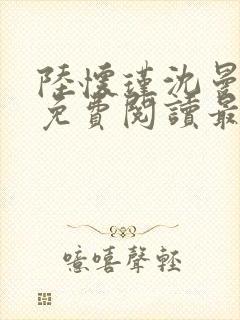 陸懷瑾沈曼
免費閱讀最
噫嘻聲輕